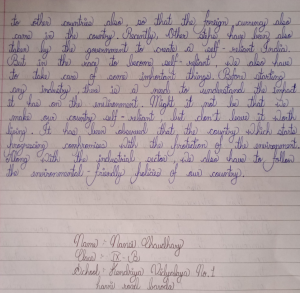 to other countries also, so that the foreign currency also
came in the country. Recently, Other steps have been also
taken by the government to create a self-reliant India.
But in the way to become self-reliant we also have
to take care of some important things. Before starting
any industry, there is a need to understand the impact
it has on the environment. Might it not be that we
make our country self-reliant but don't leave it worth
living. It has been observed that the country which starts
progressing compromises with the protection of the environment.
Along with the industrial sector, we also have to follow
the environmental-friendly policies of our country.
Name:- Chaudhary
Class:- IX-(B)
School:- Kendriya Vidyalaya No. 1
road